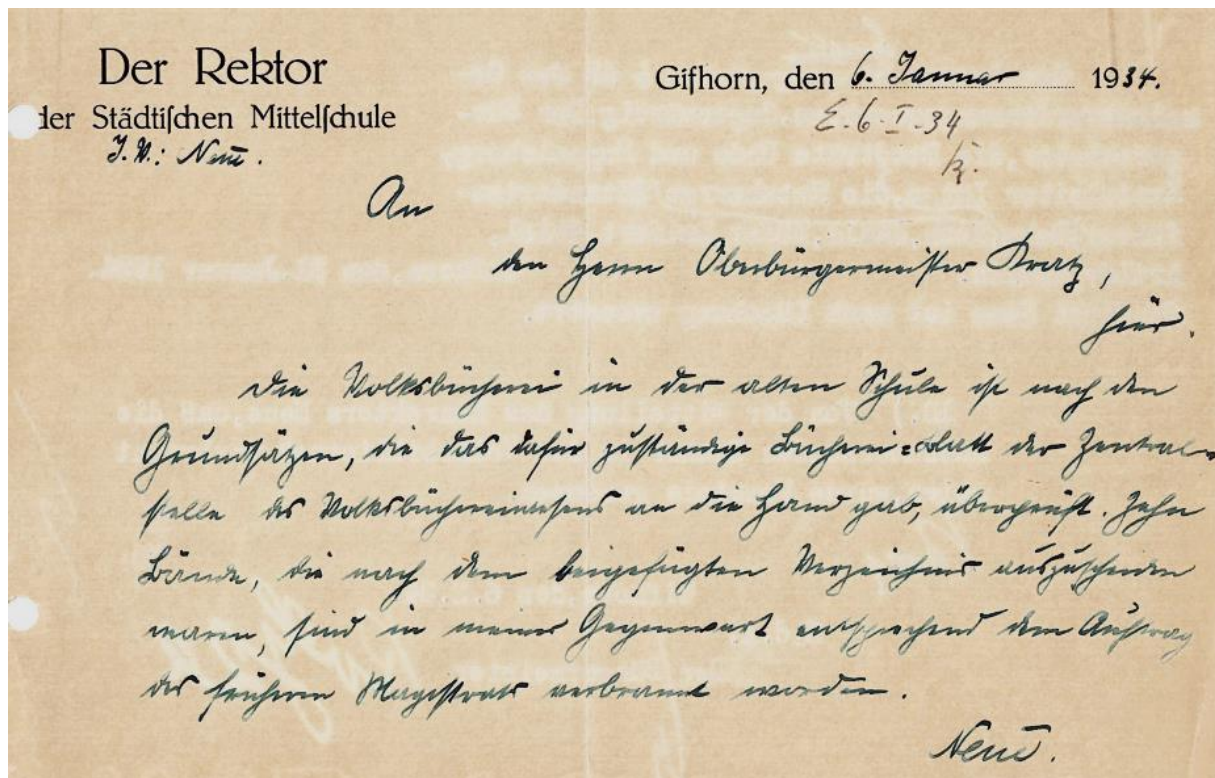 Der Rektor
der Städtiſchen Mittelſchule
I. V.: Neue.
Gifhorn, den 6. Januar 1934.
E. 6. I. 34
K.
An
den Herrn Oberbürgermeister Kratz,
hier.
Die Volksbücherei in der alten Schule ist nach den
Grundsätzen, die das dafür zuständige Bücherei=Blatt der Zentral=
stelle des Volksbüchereiwesens an die Hand gab, überprüft. Zehn
Bände, die nach dem beigefügten Verzeichnis auszuscheiden
waren, sind in meiner Gegenwart entsprechend dem Auftrag
des früheren Magistrats verbrannt worden.
Neue.